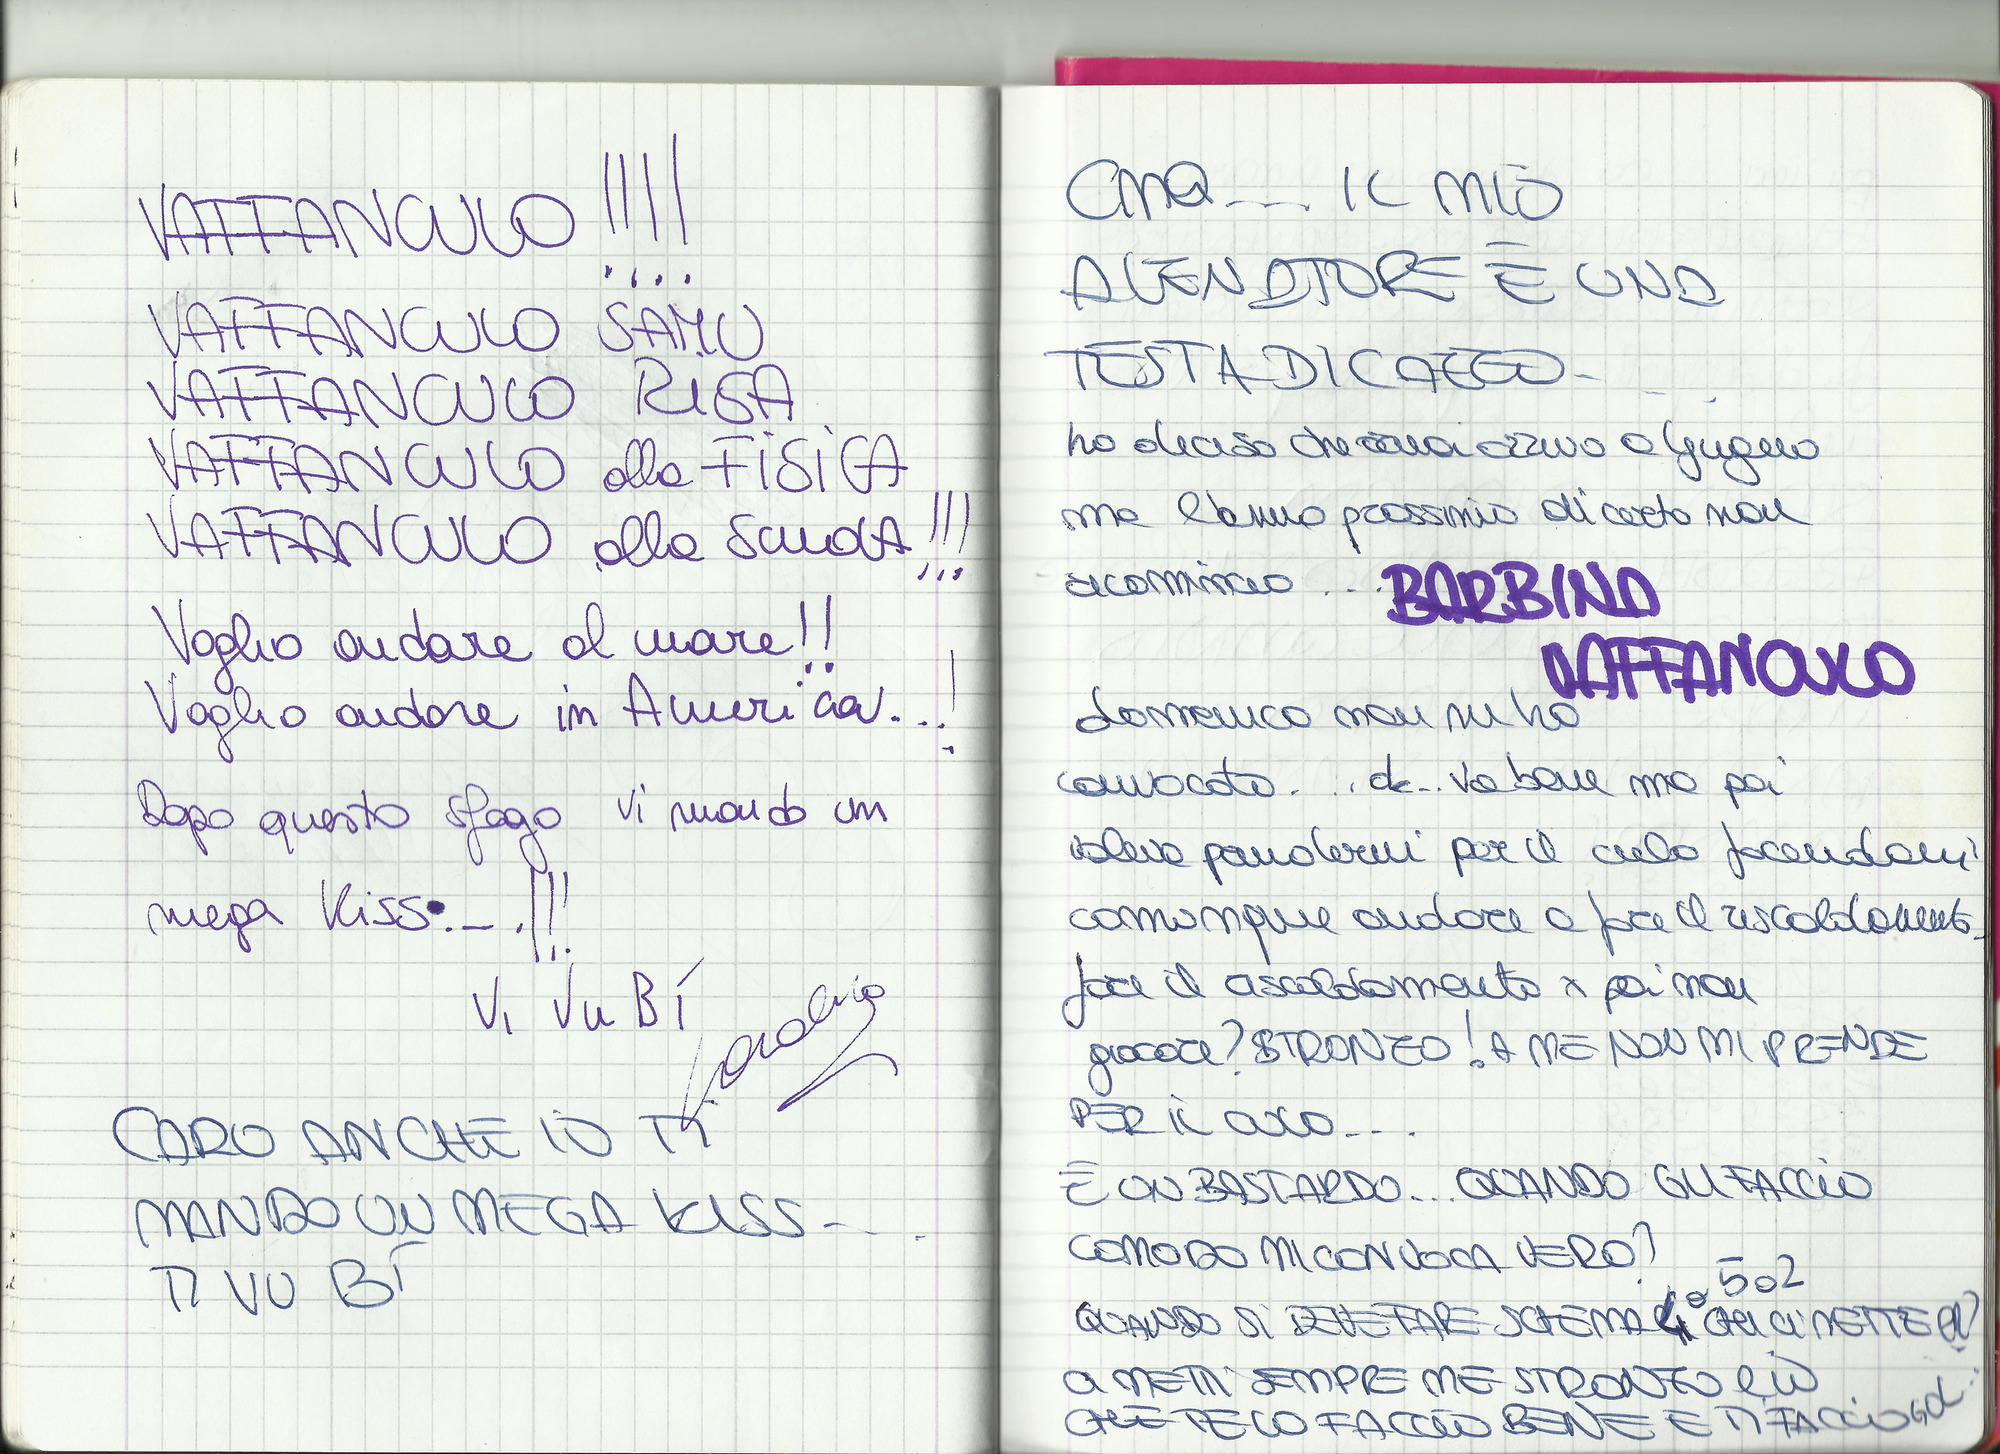 VAFFANCULO !!!!
VAFFANCULO SAMU
VAFFANCULO RISA
VAFFANCULO alla FISICA
VAFFANCULO alla SCUOLA !!!
Voglio andare al mare!!
Voglio andare in America...!
Dopo questo sfogo vi mando un
mega Kiss....!!!
Vi Vu Bí
CARO ANCHE IO TI
MANDO UN MEGA KISS....
TI VU BÍ
CMQ.... IL MIO
ALENATORE È UNA
TESTA DI CAZZO....
ho deciso che arrivo a Giugno
ma l'anno prossimo di certo non
ricomincio ... BARBINA
VAFFANCULO
domenica non mi ha
convocato... ok.. va bene ma poi
voleva prendermi per il culo facendomi
comunque andare a fare il riscaldamento..
fare il riscaldamento x poi non
giocare? STRONZO! A ME NON MI PRENDE
PER IL CULO....
È UN BASTARDO... QUANDO GLI FACCIO
COMODO MI CONVOCA VERO?
QUANDO SI DEVE FARE SCHEMA 4° 5 o 2 CHI CI METTE
CI METTI SEMPRE ME STRONZO
CHE TE LO FACCIO BENE E TI FACCIO GOL...